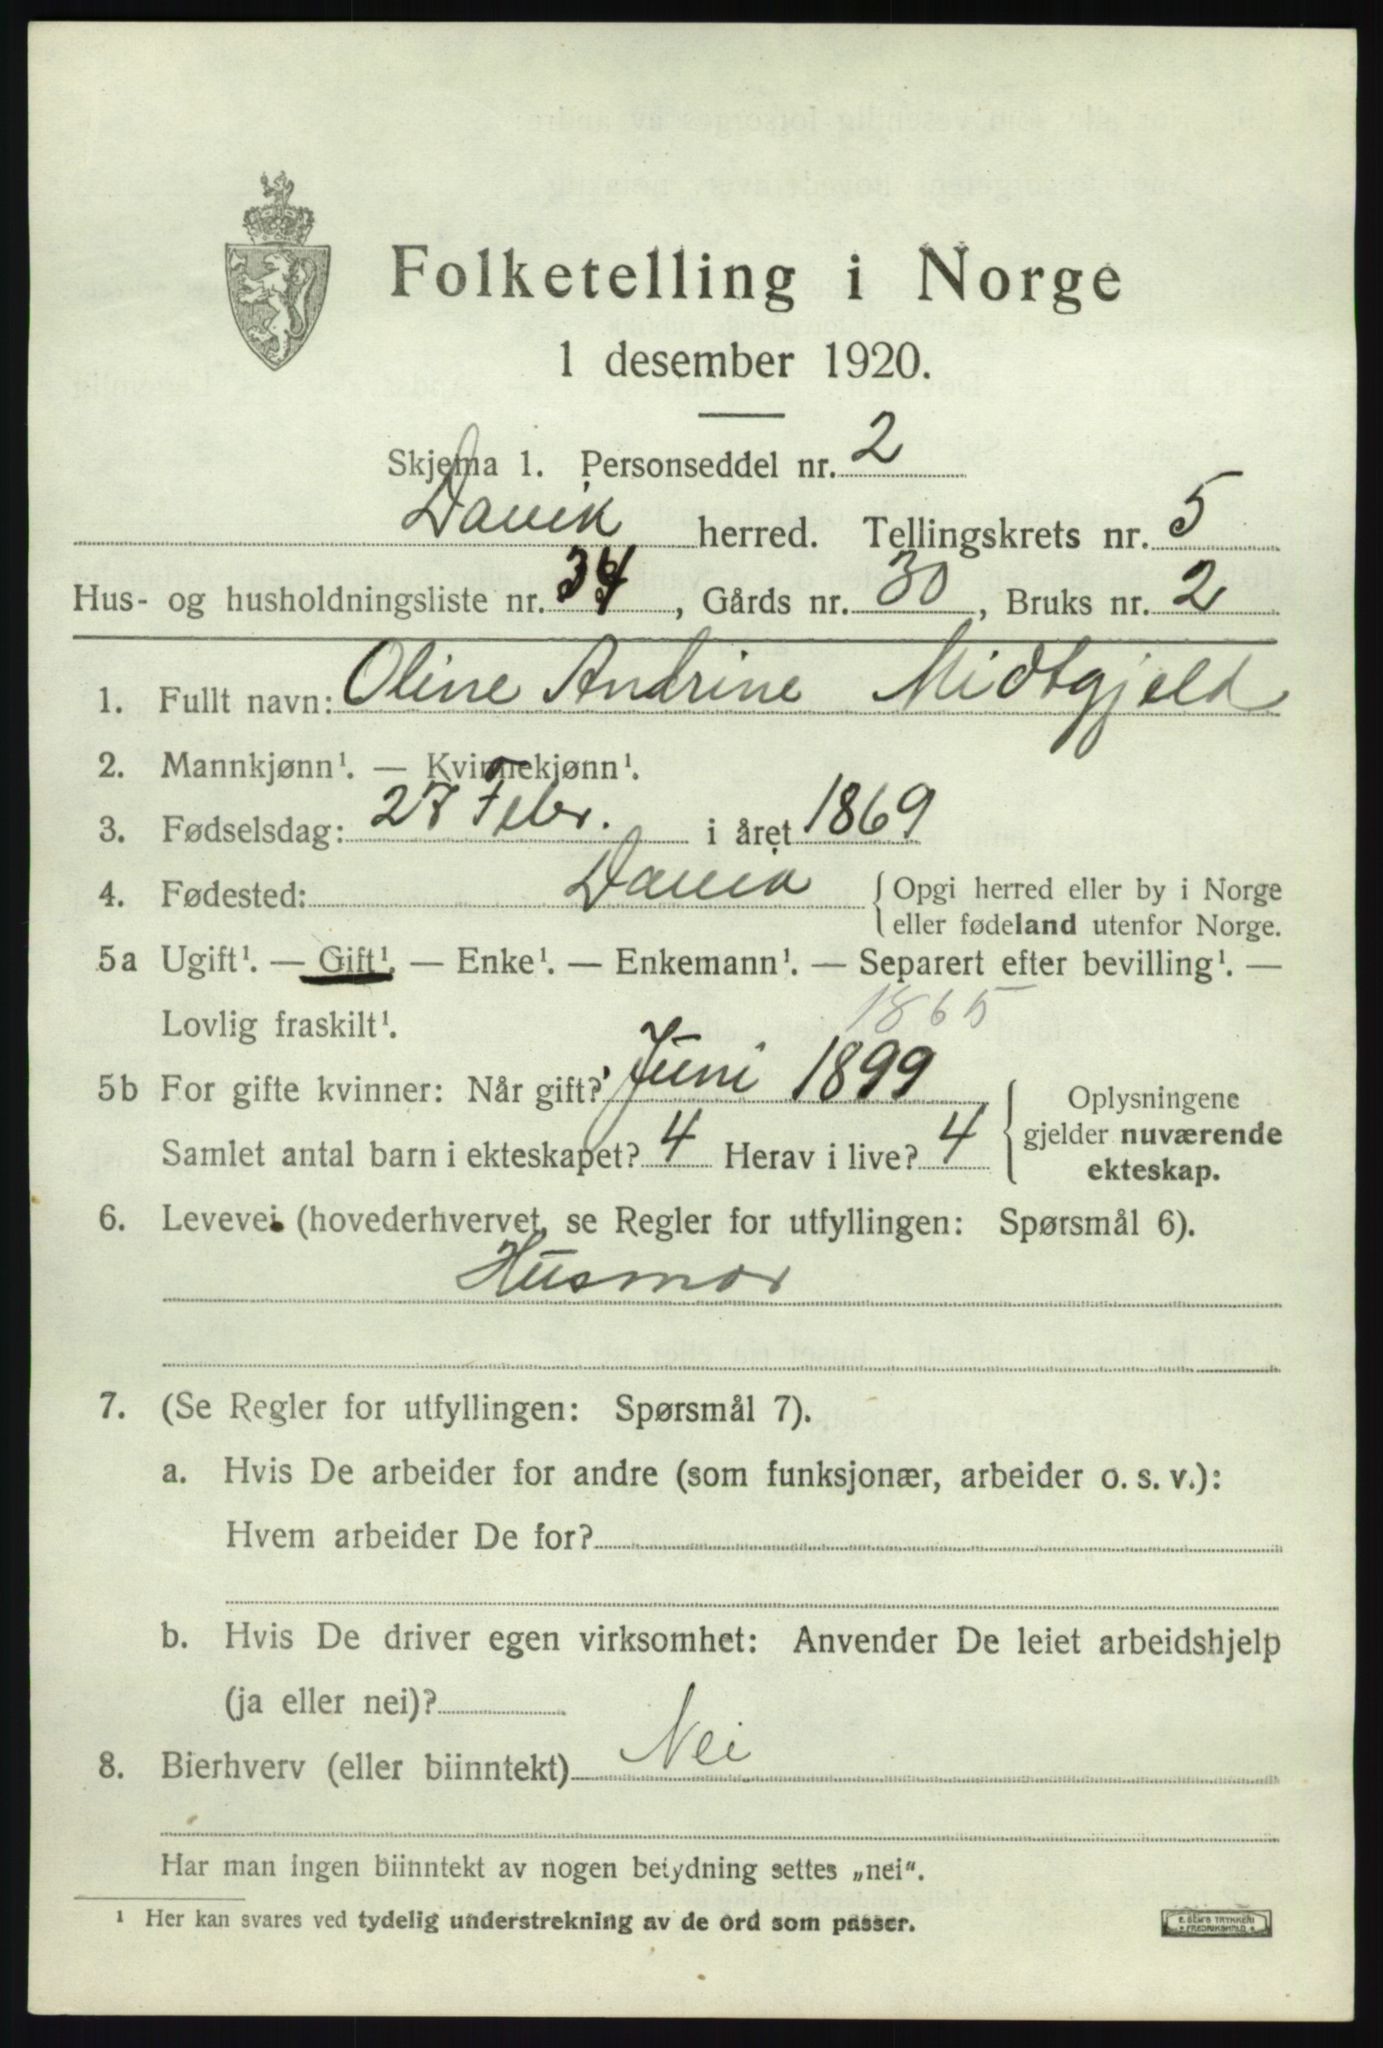 Folketelling i Norge
1 desember 1920.
Skjema 1. Personseddel nr. 2
Davik herred. Tellingskrets nr. 5
Hus- og husholdningsliste nr. 34, Gårds nr. 30, Bruks nr. 2
1. Fullt navn: Oline Andrine Midtgjeld
2. Mannkjønn¹. — Kvinnekjønn¹.
3. Fødselsdag: 27 Febr. i året 1869
4. Fødested: Davik { Opgi herred eller by i Norge
eller fødeland utenfor Norge.
5a Ugift¹. — Gift¹. — Enke¹. — Enkemann¹. — Separert efter bevilling¹. —
Lovlig fraskilt¹. 1865
5b For gifte kvinner: Når gift? Juni 1899 { Oplysningene
Samlet antal barn i ekteskapet? 4 Herav i live? 4 gjelder nuværende
ekteskap.
6. Levevei (hovederhvervet, se Regler for utfyllingen: Spørsmål 6).
Husmor
7. (Se Regler for utfyllingen: Spørsmål 7).
a. Hvis De arbeider for andre (som funksjonær, arbeider o. s. v.):
Hvem arbeider De for?
b. Hvis De driver egen virksomhet: Anvender De leiet arbeidshjelp
(ja eller nei)?
8. Bierhverv (eller biinntekt) Nei
Har man ingen biinntekt av nogen betydning settes „nei“.
¹ Her kan svares ved tydelig understrekning av de ord som passer.
E. SEM'S TRYKKERI
FREDRIKSHALD